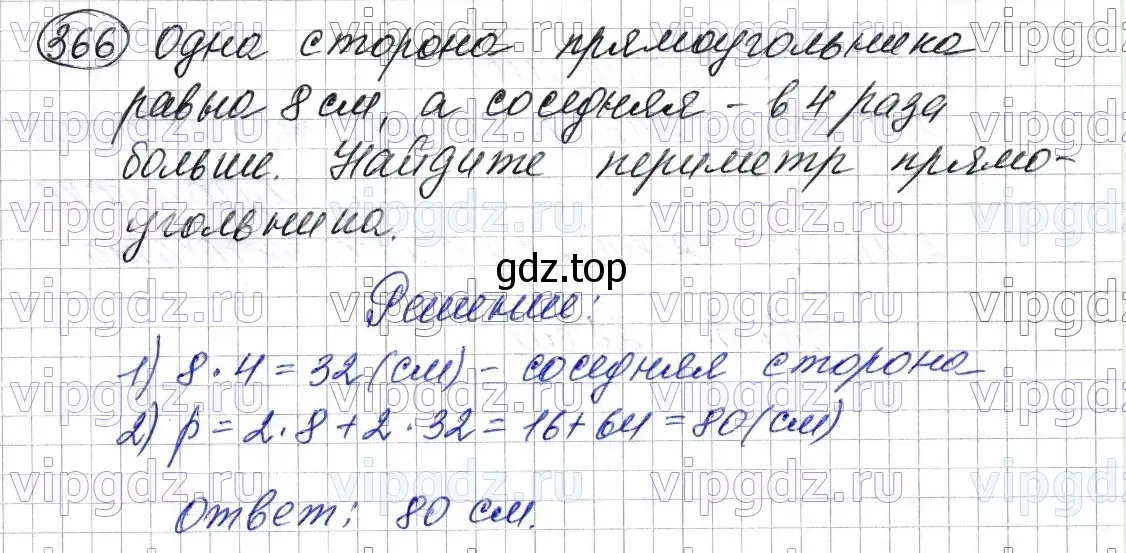 366 Одна сторона прямоугольника
равна 8 см, а соседняя - в 4 раза
больше. Найдите периметр прямо-
угольника.
gdz.top
Решение:
1) 8 · 4 = 32 (см) - соседняя сторона
2) P = 2 · 8 + 2 · 32 = 16 + 64 = 80 (см)
Ответ: 80 см.
vipgdz.ru